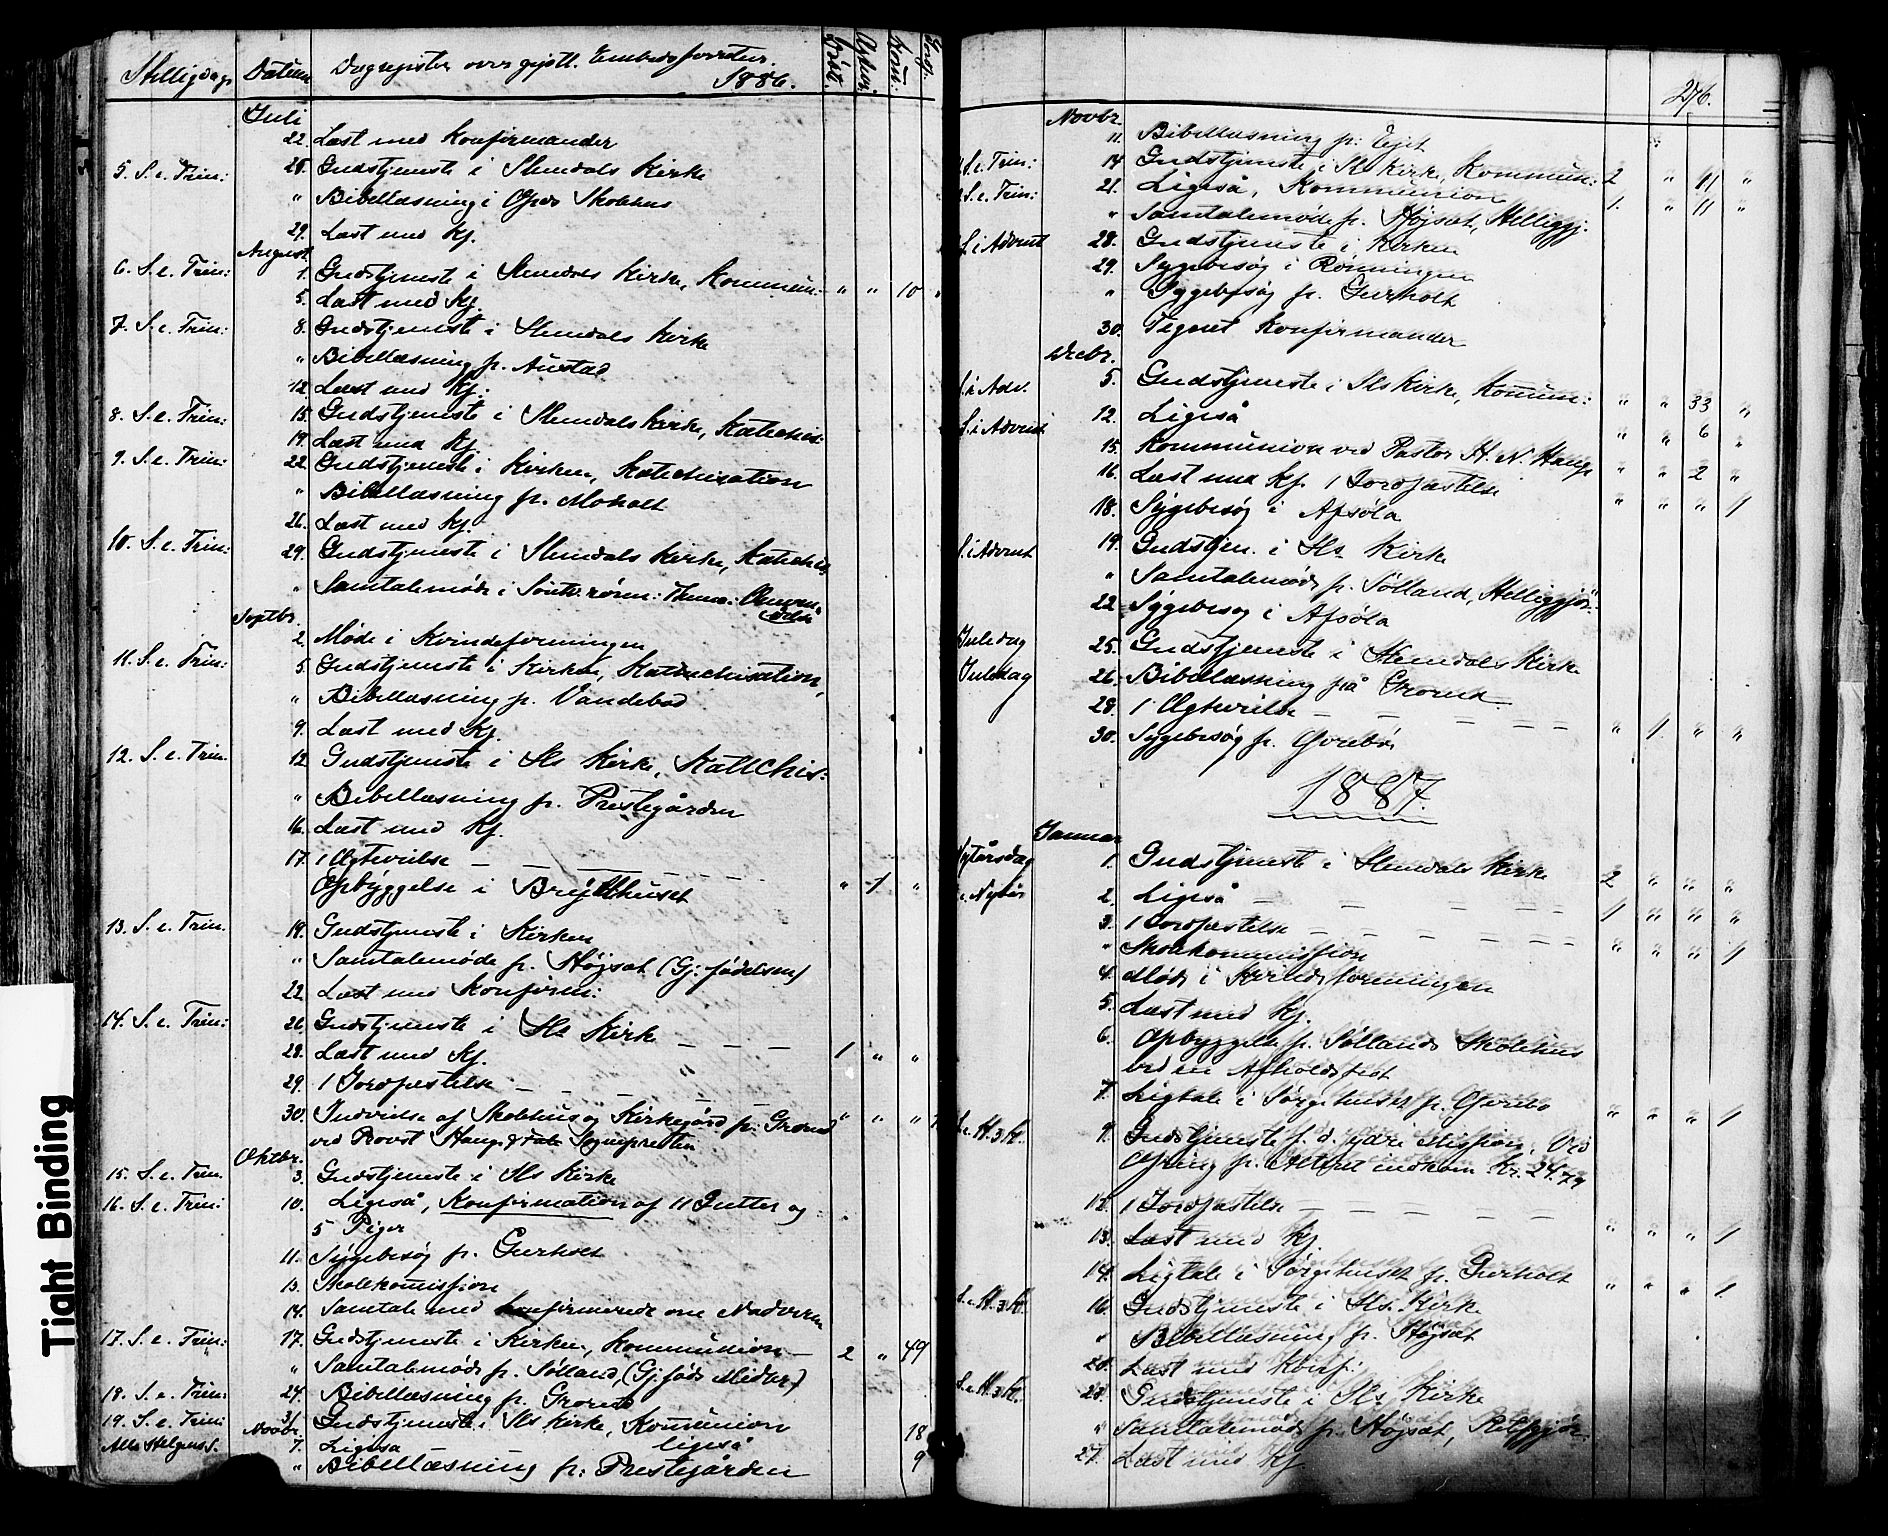 Helligdage Datum Dagregister over gejstl. Embedsforretn. 1886. Døbt. Ægtevi. Kom: Jordf.
Juli
22. Læst med Konfirmander
5. S. e. Trin: 25. Gudstjeneste i Slemdals Kirke
" Bibellæsning i Skolehus
29. Læst med Kf.
August
6. S. e. Trin: 1. Gudstjeneste i Slemdals Kirke, Kommun: " " 10
5. Læst med Kf.
7. S. e. Trin: 8. Gudstjeneste i Slemdals Kirke
" Bibellæsning p. Austad
12. Læst med Kf.
8. S. e. Trin: 15. Gudstjeneste i Slemdals Kirke, Katechis:
19. Læst med Kf.
9. S. e. Trin: 22. Gudstjeneste i Kirken, Katechisation
" Bibellæsning p. Moholt
26. Læst med Kf.
10. S. e. Trin: 29. Gudstjeneste i Slemdals Kirke, Katechis
" Samtalemøde i
Septbr.
2. Møde i Kvindeforeningen
11. S. e. Trin: 5. Gudstjeneste i Kirken, Katechisation,
" Bibellæsning p. Vandebad
9. Læst med Kf.
12. S. e. Trin. 12 Gudstjeneste i Sls Kirke, Katechis:
" Bibellæsning p. Prestegården
16. Læst med Kf.
17. 1 Ægtevielse — — — " 1 "
Opbyggelse i Bryllhuset
13. S. e. Trin. 19. Gudstjeneste i Kirken
" Samtalemøde p. Højsæt (Gj: fødelsen)
22. Læst med Konfirm:
14. S. e. Trin: 26. Gudstjeneste i Sls Kirke — — — 1 " "
28. Læst med Kf.
29. 1 Jordfæstelse — — —
30. Indvielse af Skolehus og Kirkegård p: Grorud " " "
ved Provst Hauge & Sognepresten
Oktbr.
15. S. e. Trin. 3. Gudstjeneste i Sls Kirke
16. S. e. Trin: 10. Ligeså, Konfirmation af 11 Gutter og
5 Piger
11. Sygebesøg p. Gurholt
13. Skolekomission
14. Samtale med konfirmerede om Nadveren
17. S. e. Trin: 17. Gudstjeneste i Kirken, Kommunion — 2 " 49
" Samtalemøde p. Sølland, (Gj: føds Midler)
18. S. e. Trin: 24. Bibellæsning p. Grorud
19. S. e. Trin: 31. Gudstjeneste i Sls Kirke, Komunion 18
Novbr.
Alle Helgens S. 7. Ligeså ligeså 9
" Bibellæsning p: Prestegården
276.
Novbr.
11. Bibellæsning p. Ejet
S. e. Trin: 14 Gudstjeneste i Sls Kirke, Kommun: 2 " 11 "
S. e. Trin: 21. Ligeså, Kommunion 1. " 11 "
" Samtalemøde p. Højsæt, Helliggj.
S. i Advent 28. Gudstjeneste i Kirken
29. Sygebesøg i Rønningen
" Sygebesøg p. Gurholt
30. Tegnet Konfirmander
Decbr.
S. i Adv. 5. Gudstjeneste i Sls Kirke, Komun: " " 33 "
S. i Advent 12. Ligeså " " 6 "
15. Kommunion ved Pastor H. N. Hauge " " 2 "
16. Læst med Kf. 1 Jordfæstelse " " " 1
18. Sygebesøg i Afsøla
S. i Advent 19. Gudstjen. i Sls Kirke
" Samtalemøde p. Sølland, Helliggjør:
22. Sygebesøg i Afsøla
Juledag 25. Gudstjeneste i Slemdals Kirke
Juledag 26. Bibellæsning på Grorud
28. 1 Ægtevielse — — — " 1. " "
30. Sygebesøg p. Øvrebø
1887.
Januar
Nytårsdag 1. Gudstjeneste i Slemdals Kirke 2 " " "
e. Nytår 2. Ligeså — — — 1 " " "
3. 1 Jordfæstelse — — — " " " 1
" Skolekommission
4. Møde i Kvindeforeningen
5. Læst med Kf.
6. Opbyggelse p. Søllands Skolehus
ved en Afholdsfest
7. Ligtale i Sørgehuset p. Øvrebø " " " 1
S. e. H. 3 K. 9. Gudstjeneste f. d. ydre Mission, Ved
Ofring p. Alteret indkom Kr. 24.79
12. 1 Jordfæstelse — — — " " " 1
13. Læst med Kf.
14. Ligtale i Sørgehuset p. Gurholt " " " 1
S. e. H. 3 K. 16. Gudstjeneste i Sls. Kirke
" Bibellæsning p. Højsæt
20. Læst med Konf:
S. e. H. 3 K. 23. Gudstjeneste i Sls Kirke
" Samtalemøde p. Højsæt, Retfgjør:
27. Læst med Kf
Tight Binding